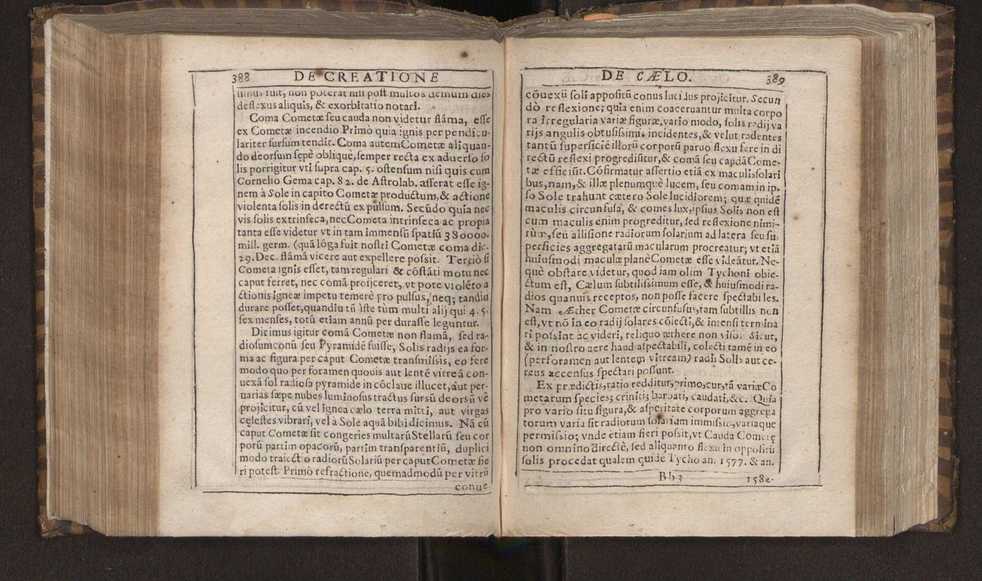 388 DE CREATIONE
minus fuit, non poterat nisi post multos demum dies
deflexus aliquis, & exorbitatio notari.
Coma Cometæ seu cauda non videtur flāma, esse
ex Cometæ incendio Primò quia ignis per pendicu-
lariter sursum tendit. Coma autem Cometæ aliquan-
do deorsum sępè oblique, semper recta ex aduerso so
lis porrigitur vti supra cap. 5. ostensum nisi quis cum
Cornelio Gema cap. 82. de Astrolab. asserat esse ig-
nem à Sole in capito Cometæ productum, & actione
violenta solis in derectū ex pulsum. Secūdo quia nec
vis solis extrinseca, nec Cometa intrinseca ac propia
tanta esse videtur vt in tam immensū spatiū 380000.
mill. germ. (quā lōga fuit nostri Cometæ coma die
29. Dec. flāmā vicere aut expellere possit. Tergiò si
Cometa ignis esset, tam regulari & cōstāti motu nec
caput ferret, nec comā proijceret, vt pote violēto a
ctionis igneæ impetu temerè pro pulsus, neq; tandiu
durare posset, quandiu tū iste tum multi alij qui 4. 5.
sex menses, totū etiam annū per durasse leguntur.
Dicimus igitur comā Cometæ non flamā, sed ra-
diosum conū seu Pyramidē fuisse, Solis radijs ea for-
ma ac figura per caput Cometæ transmissis, eo fere
modo quo per foramen quouis aut lentē vitreā con-
uexā sol radiosa pyramide in cōclaue illucet, aut per
uarias sæpe nubes luminosus tractus sursū deorsū vè
projicitur, cū vel ignea cælo terra mitti, aut virgas
cęlestes vibrari, vel a Sole aquā bibi dicimus. Nā cū
caput Cometæ sit congeries multarū Stellarū seu cor
porū partim opacorū, partim transparentiū, duplici
modo traiectio radiorū Solariū per caput Cometæ fie
ri potest. Primò refractione, quemadmodū per vitrū
conue
DE CÆLO. 389
cōuexū soli appositū conus lucidus projicitur. Secun
dò reflexione; quia enim coaceruantur multa corpo
ra irregularia variæ figuræ, vario modo, solis radij va
rijs angulis obtusissimis incidentes, & velut radentes
tantū superficiē illorū corporū paruo flexu fere in di
rectū reflexi progrediūtur, & comā seu caudā Come-
tæ efficiūt. Cōfirmatur assertio etiā ex maculis solari
bus, nam, & illæ plenumquè lucem, seu comam in ip-
so Sole trahunt cætero Sole lucidiorem; quæ quidē
maculis circunfusā, & comes lux, ipsius Solis non est
cum maculis enim progreditur, sed reflexione nimi-
rū, seu allisione radiorum solarium ad latera seu su-
perficies aggregatarū macularum procreatur; vt etiā
huiusmodi maculæ planè Cometæ esse videātur. Ne-
què obstare videtur, quod iam olim Tychoni obie-
ctum est, Cælum subtilissimum esse, & huiusmodi ra-
dios quanuis receptos, non posse facere spectabi les.
Nam Æther Cometæ circunfusus, tam subtilis non
est, vt nō in eo radij solares cōiecti, & imensi termina
ri possint ac videri, reliquo æthere non viso: sicut,
& in nostro aere haud aspectabili, colecti tamē in eo
(per foramen aut lentem vitream) radij Solis aut ce-
reus accensus spectari possunt.
Ex prædictis, ratio redditur, primo, cur, tā variæ Co
metarum species; crinitis, barbati, caudati, &c. Quia
pro vario situ figura, & asperitate corporum aggrega
torum varia sit radiorum solariam immissio, variaque
permissio; vnde etiam fieri possit, vt Cauda Cometę
non omnino directè, sed aliquanto flexu in oppositū
solis procedat qualem quide Tycho an. 1577. & an.
Bb3 1582.